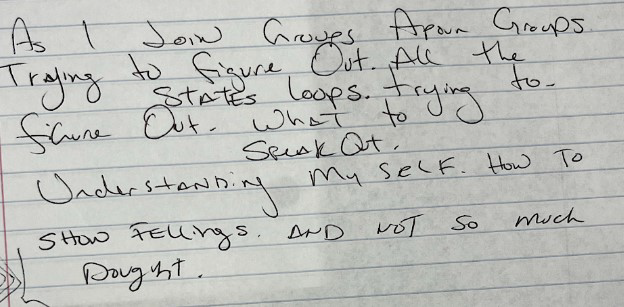 As I Join Groups Apoun Groups.
Trying to figure Out. All the
STATES loops. trying to-
figure Out. WHAT to
Speak Out.
Understanding My SELF. How To
SHOW FEllings. AND NOT So much
Dought.